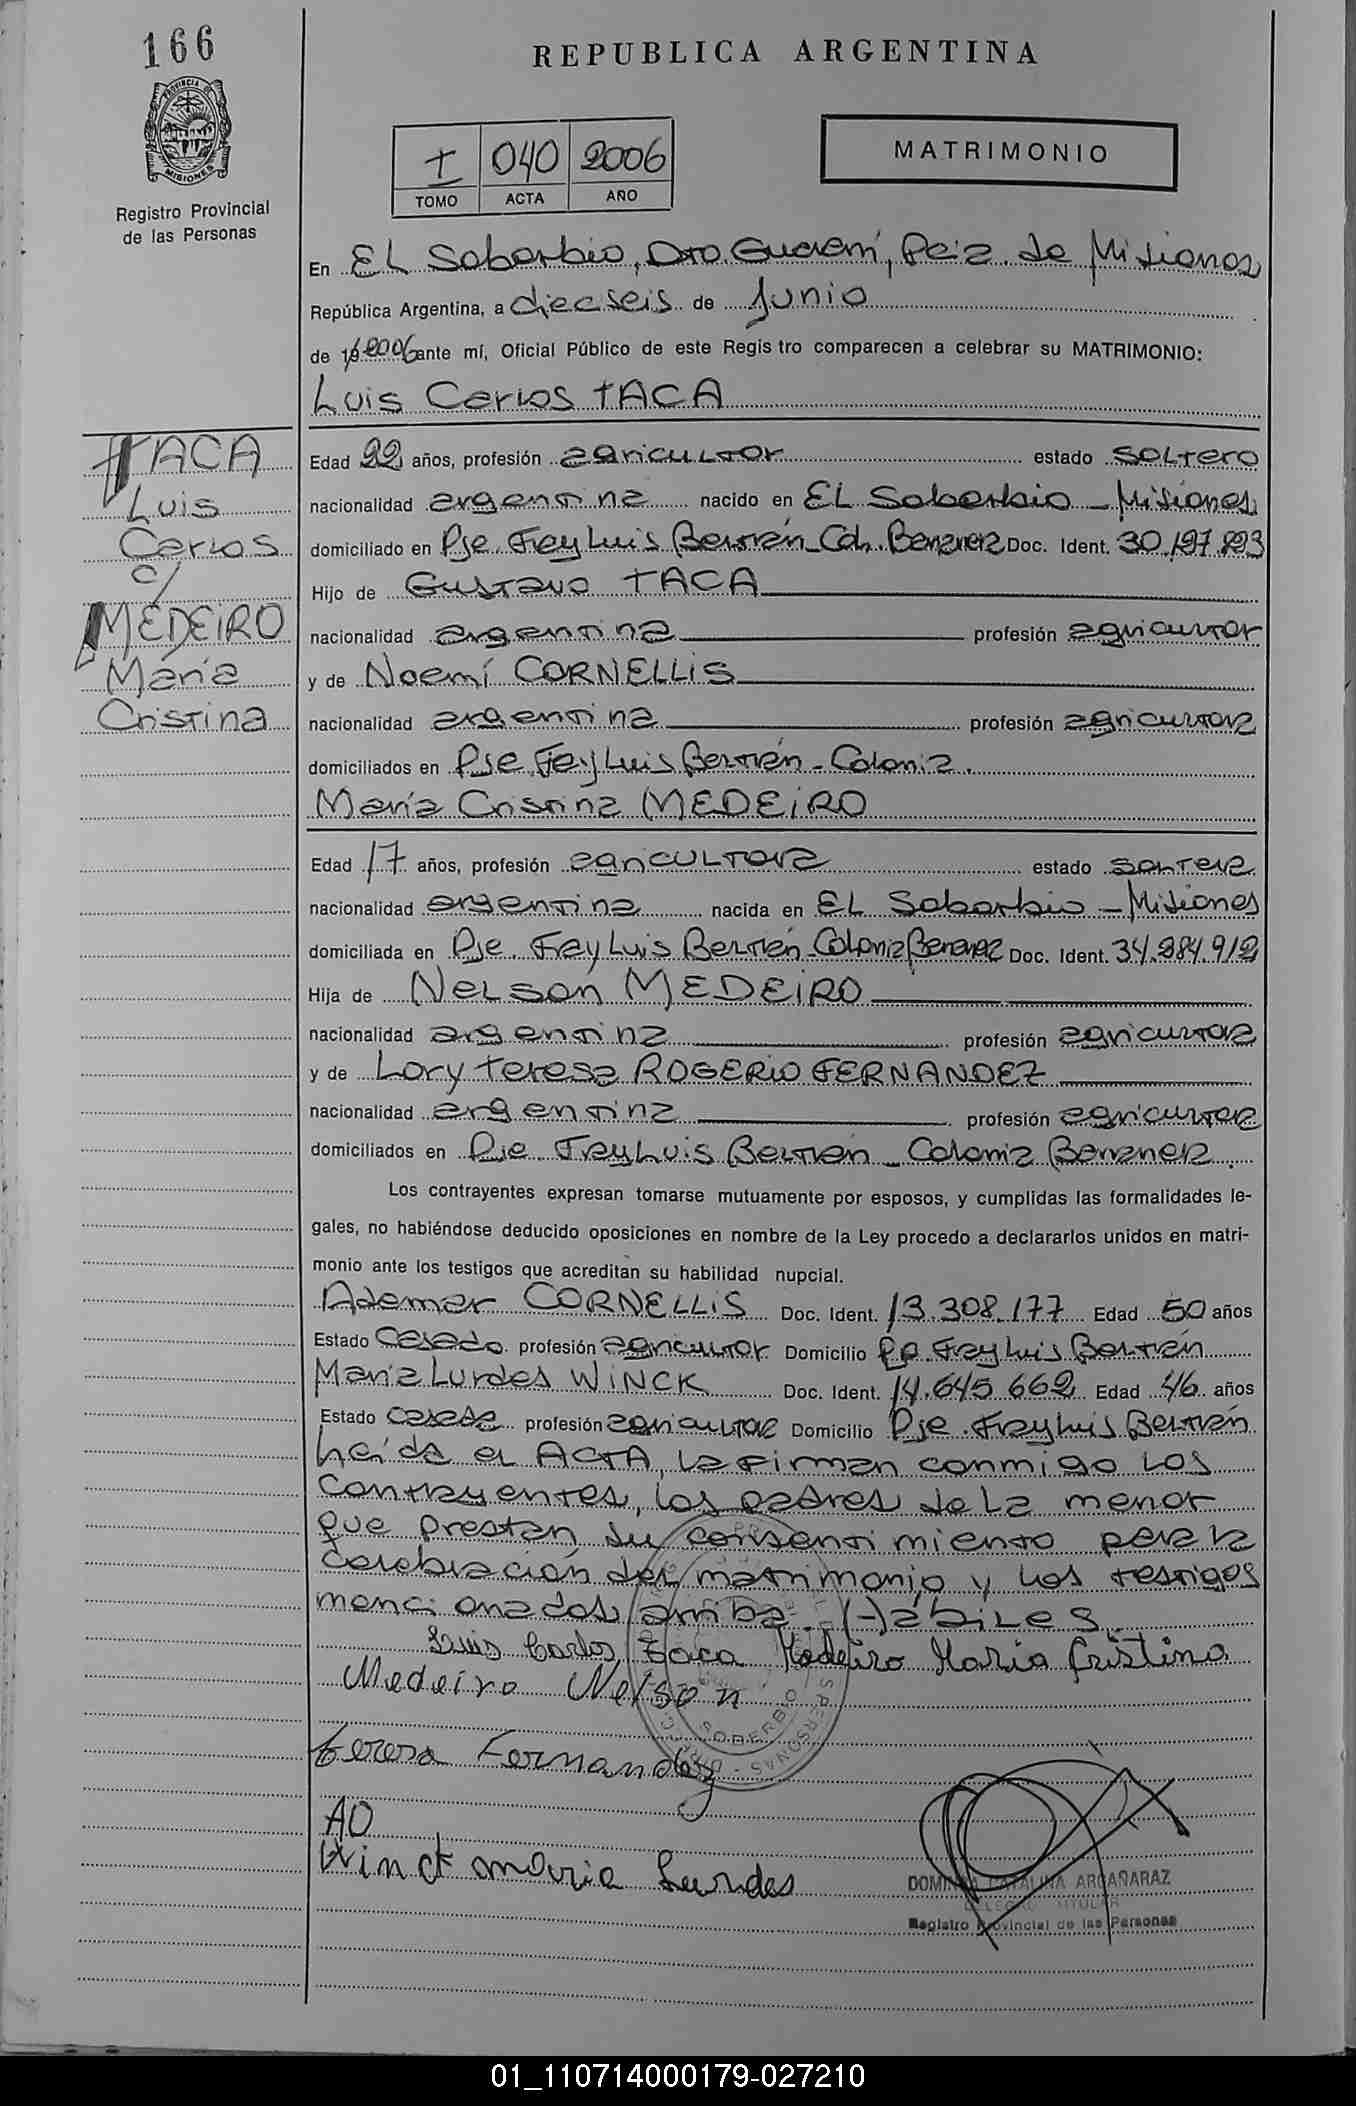 166
REPUBLICA ARGENTINA
PROVINCIA DE
MISIONES
Registro Provincial
de las Personas
I 040 2006
TOMO ACTA AÑO
MATRIMONIO
En El Soberbio, Dto. Guaraní, Pcia. de Misiones
República Argentina, a dieciseis de Junio
de 2006 ante mí, Oficial Público de este Registro comparecen a celebrar su MATRIMONIO:
Luis Carlos TACA
TACA
Luis
Carlos
c/
MEDEIRO
María
Cristina
Edad 22 años, profesión agricultor estado soltero
nacionalidad argentina nacido en El Soberbio - Misiones
domiciliado en Pje. Fray Luis Beltrán - Col. Doc. Ident. 30.197.893
Hijo de Gustavo TACA
nacionalidad argentina profesión agricultor
y de Noemí CORNELLIS
nacionalidad argentina profesión agricultora
domiciliados en Pje. Fray Luis Beltrán - Colonia.
María Cristina MEDEIRO
Edad 17 años, profesión agricultora estado soltera
nacionalidad argentina nacida en El Soberbio - Misiones
domiciliada en Pje. Fray Luis Beltrán - Colonia Doc. Ident. 34.984.912
Hija de Nelson MEDEIRO
nacionalidad argentina profesión agricultora
y de Lory Teresa ROGERIO FERNANDEZ
nacionalidad argentina profesión agricultora
domiciliados en Pje. Fray Luis Beltrán - Colonia
Los contrayentes expresan tomarse mutuamente por esposos, y cumplidas las formalidades le-
gales, no habiéndose deducido oposiciones en nombre de la Ley procedo a declararlos unidos en matri-
monio ante los testigos que acreditan su habilidad nupcial.
Ademar CORNELLIS Doc. Ident. 13.308.177 Edad 50 años
Estado Casado profesión agricultor Domicilio Fray Luis Beltrán
María Lurdes WINCK Doc. Ident. 14.645.662 Edad 46 años
Estado casada profesión agricultora Domicilio Pje. Fray Luis Beltrán
Leída el ACTA, la firman conmigo los
contrayentes, los padres de la menor
que prestan su consentimiento para la
celebración del matrimonio y los testigos
mencionados arriba. (-) ábiles.
Luis Carlos Taca Medeiro Maria Cristina
Medeiro Nelson
Teresa Fernandez
AO
Winck maria Lurdes
SOBERBIO
CATALINA ARGAÑARAZ
TITULAR
Registro Provincial de las Personas
01_110714000179-027210